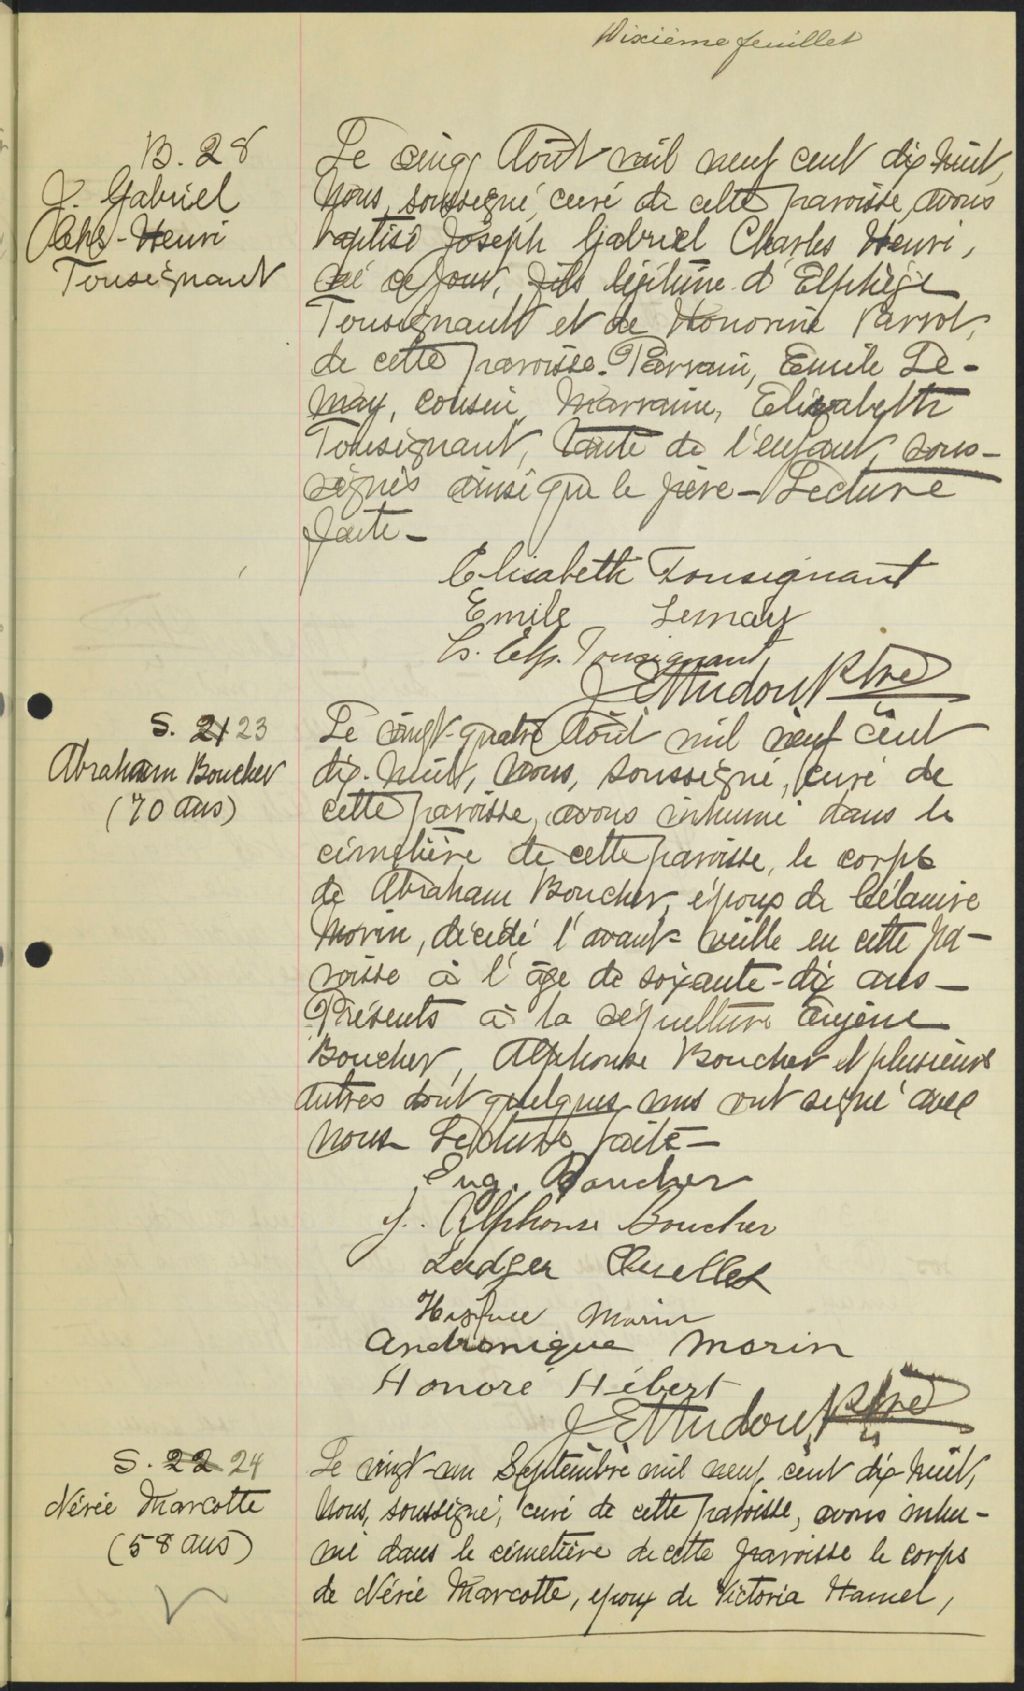 Dixième feuillet
B. 28
J. Gabriel
Chs-Henri
Tousignant
Le cinq Août mil neuf cent dix huit,
Nous, soussigné, curé de cette paroisse, avons
baptisé Joseph Gabriel Charles Henri,
né ce jour, fils légitime d'Elphège
Tousignant et de Honorine Parrot,
de cette paroisse. Parrain, Emile Le-
may, cousin, Marraine, Elizabeth
Tousignant, tante de l'enfant, sous-
signés ainsi que le père - Lecture
faite -
Elisabeth Tousignant
Emile Lemay
Tousignant
Ptre
S. 21 23
Abraham Boucher
(70 ans)
Le vingt-quatre Août mil neuf cent
dix-huit, Nous, soussigné, curé de
cette paroisse, avons inhumé dans le
cimetière de cette paroisse, le corps
de Abraham Boucher, époux de Célanire
Morin, décédé l'avant-veille en cette pa-
roisse à l'âge de soixante-dix ans -
Présents à la sépulture Eugène
Boucher, Alphonse Boucher et plusieurs
autres dont quelques uns ont signé avec
nous Lecture faite -
Eug. Boucher
J. Alphonse Boucher
Ludger Ouellet
Morin
Andronique Morin
Honoré Hébert
Ptre
S. 22 24
Nérée Marcotte
(58 ans)
Le vingt-un Septembre mil neuf cent dix-huit,
Nous, soussigné, curé de cette paroisse, avons inhu-
mé dans le cimetière de cette paroisse le corps
de Nérée Marcotte, époux de Victoria Hamel,